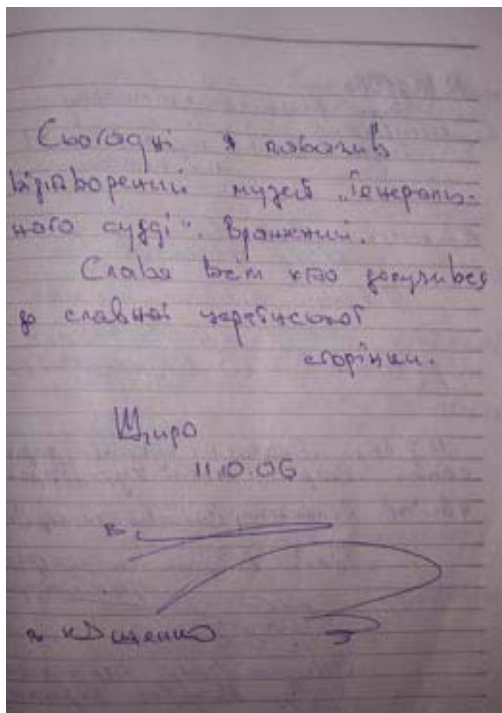 Сьогодні я побачив
відтворений музей „Генераль-
ного судді". Вражений.
Слава всім хто долучився
до славної
сторінки.
Щиро
11.10.06
В.
Ющенко